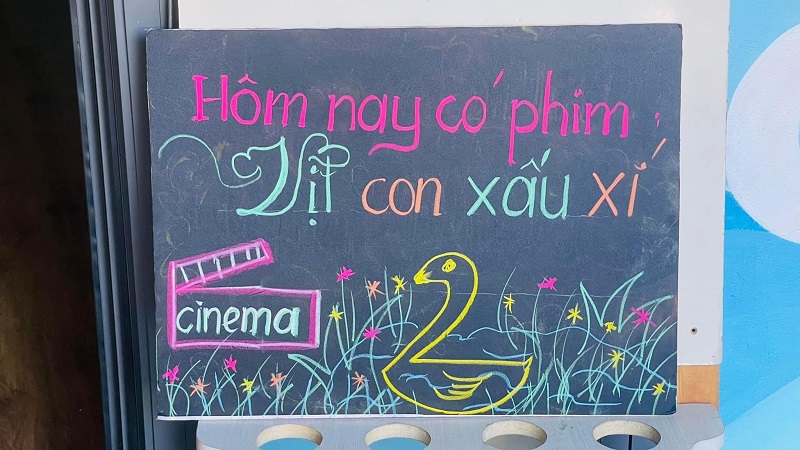 Hôm nay có phim :
Vịt con xấu xí
cinema